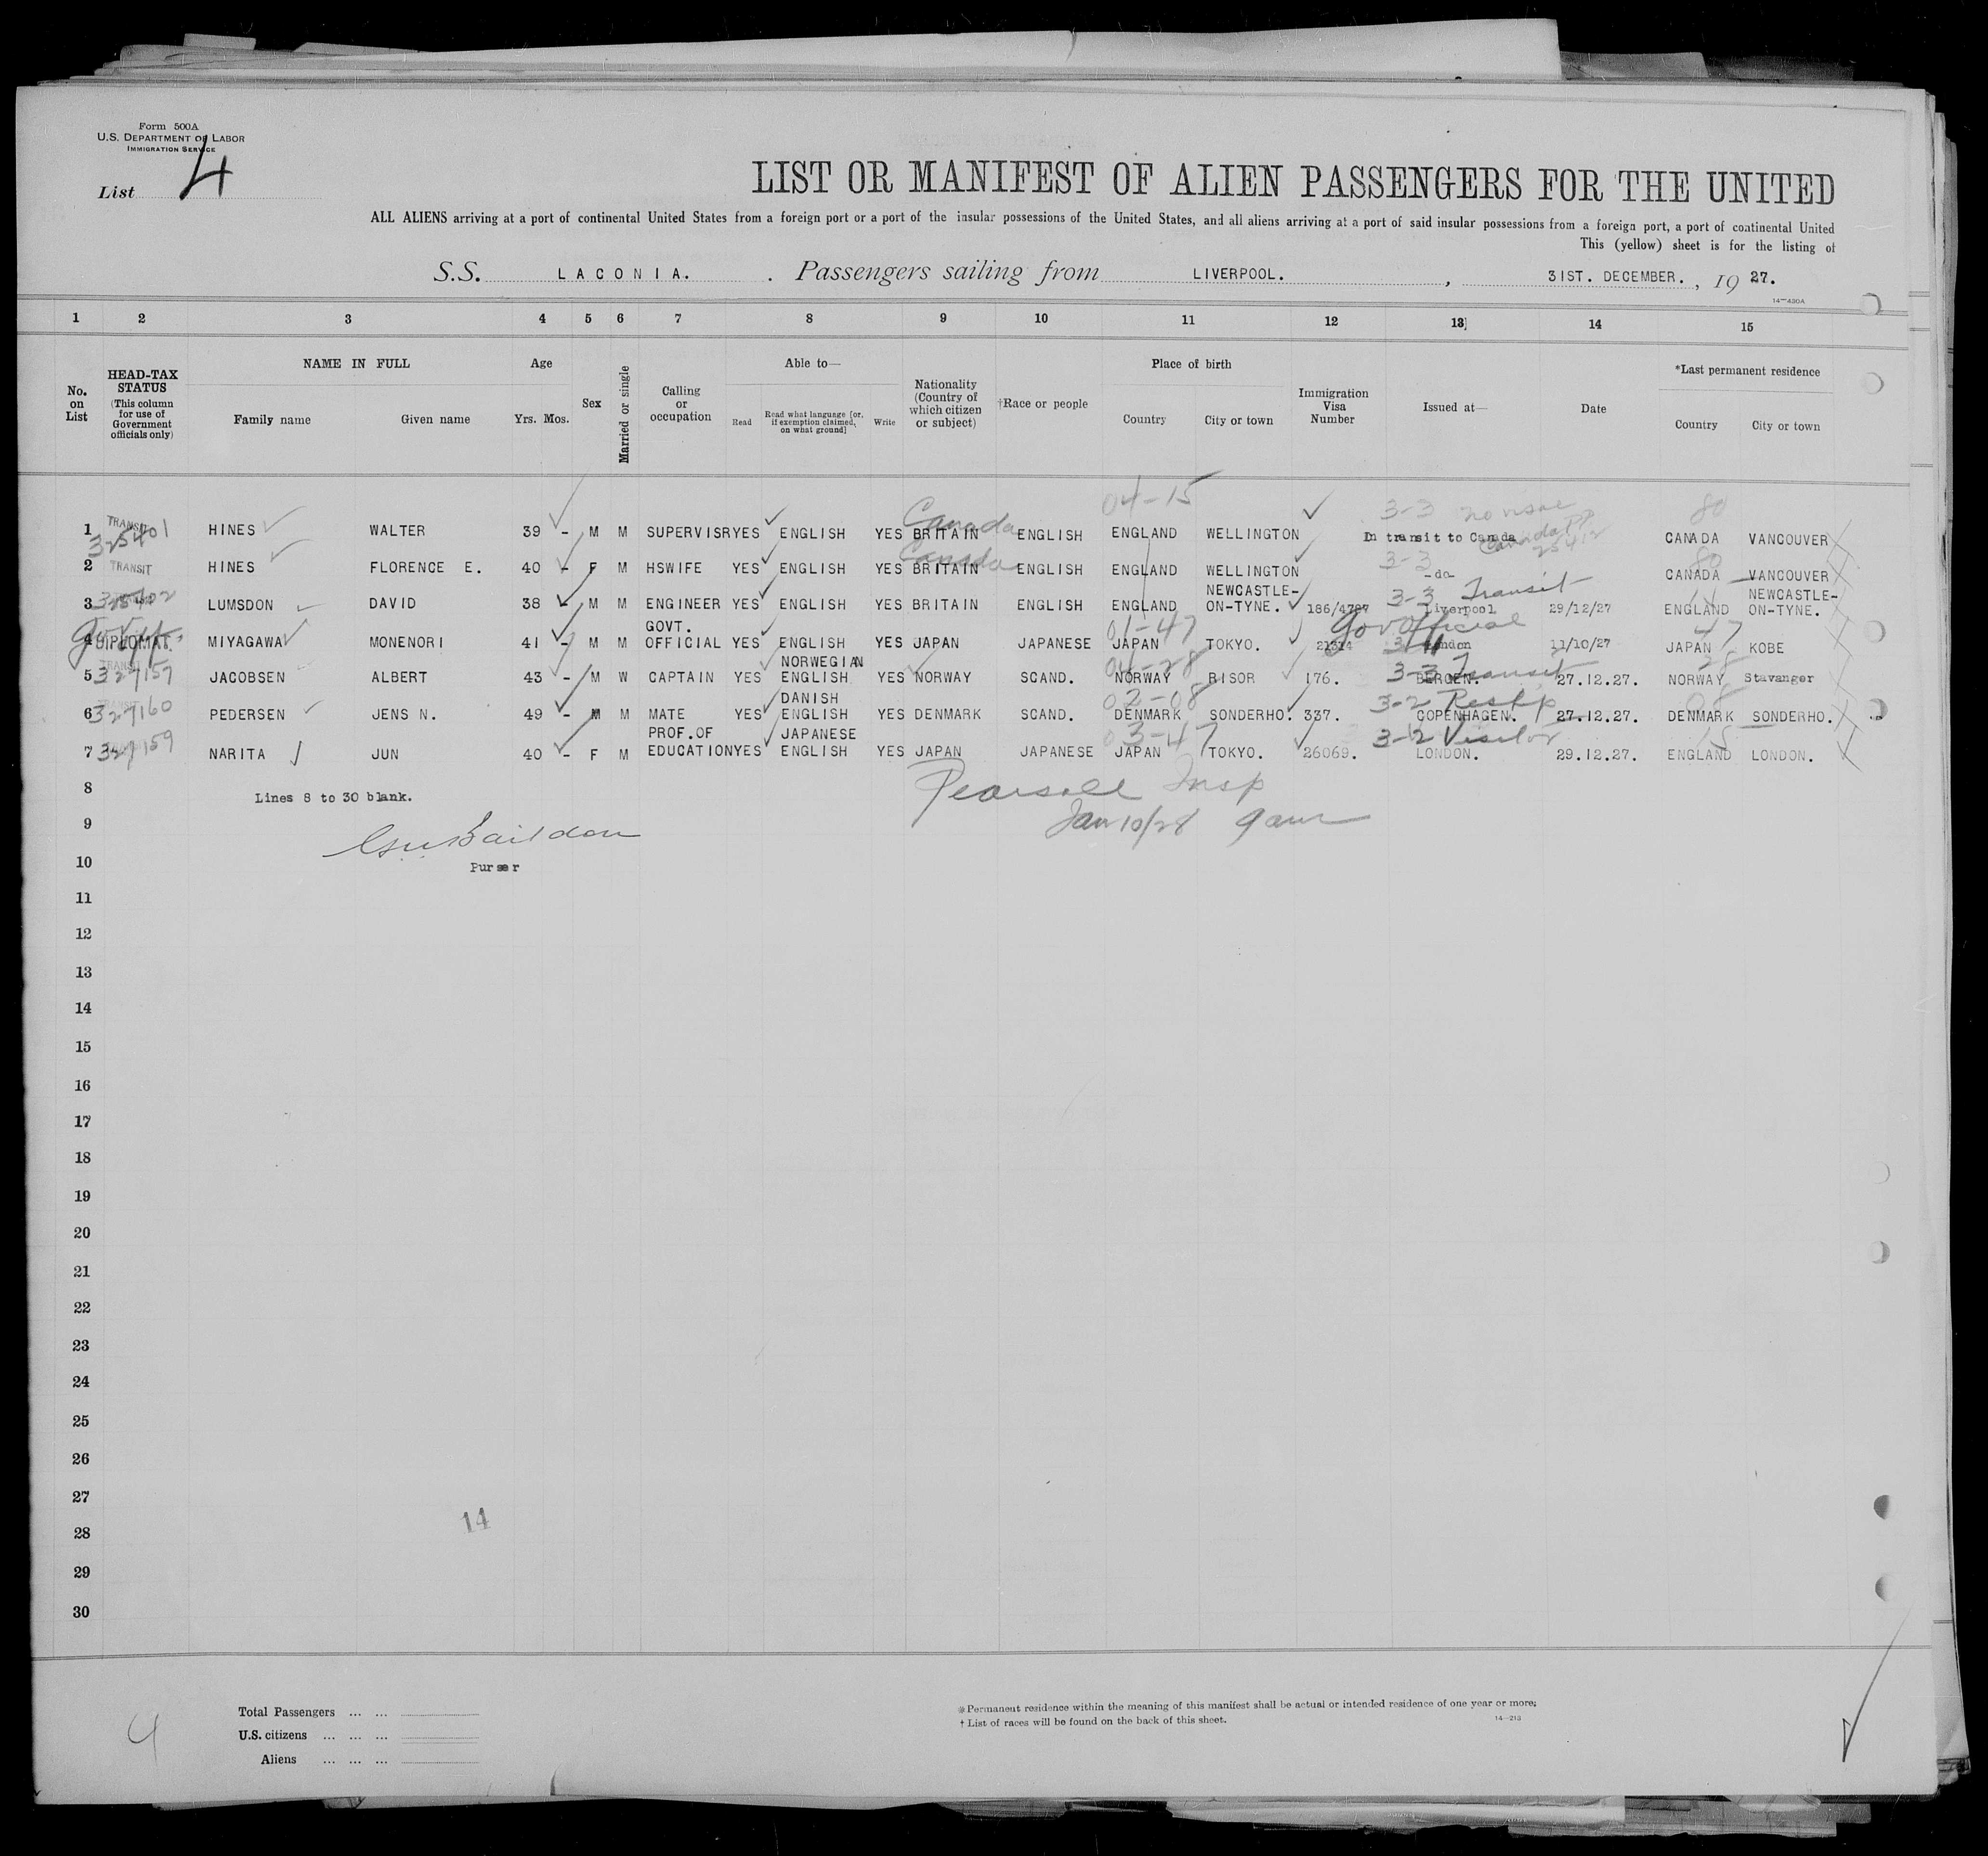 Form 500A
U.S. DEPARTMENT OF LABOR
IMMIGRATION SERVICE
List 4
LIST OR MANIFEST OF ALIEN PASSENGERS FOR THE UNITED
ALL ALIENS arriving at a port of continental United States from a foreign port or a port of the insular possessions of the United States, and all aliens arriving at a port of said insular possessions from a foreign port, a port of continental United
This (yellow) sheet is for the listing of
S.S. LACONIA. . Passengers sailing from LIVERPOOL. , 31ST. DECEMBER. , 19 27.
14—430A
1 2 3 4 5 6 7 8 9 10 11 12 13] 14 15
No. on List
HEAD-TAX STATUS (This column for use of Government officials only)
NAME IN FULL
Family name Given name
Age
Yrs. Mos.
Sex
Married or single
Calling or occupation
Able to—
Read
Read what language [or, if exemption claimed, on what ground]
Write
Nationality (Country of which citizen or subject)
†Race or people
Place of birth
Country City or town
Immigration Visa Number
Issued at—
Date
*Last permanent residence
Country City or town
04-15 3-3 80
1 TRANSIT 325401 HINES WALTER 39 - M M SUPERVISR YES ENGLISH YES BRITAIN Canada ENGLISH ENGLAND WELLINGTON In transit to Canada CANADA VANCOUVER
3-3 80
2 TRANSIT HINES FLORENCE E. 40 - F M HSWIFE YES ENGLISH YES BRITAIN Canada ENGLISH ENGLAND WELLINGTON -do- CANADA VANCOUVER
3-3 Transit
3 325402 LUMSDON DAVID 38 - M M ENGINEER YES ENGLISH YES BRITAIN ENGLISH ENGLAND NEWCASTLE-ON-TYNE. 186/4787 Liverpool 29/12/27 ENGLAND NEWCASTLE-ON-TYNE.
01-47 Gov Official 47
4 DIPLOMAT. MIYAGAWA MONENORI 41 - M M GOVT. OFFICIAL YES ENGLISH YES JAPAN JAPANESE JAPAN TOKYO. 21314 London 11/10/27 JAPAN KOBE
04-28 3-3 Transit 28
5 TRANSIT 327157 JACOBSEN ALBERT 43 - M W CAPTAIN YES NORWEGIAN ENGLISH YES NORWAY SCAND. NORWAY RISOR 176. BERGEN. 27.12.27. NORWAY Stavanger
02-08 3-2 08
6 327160 PEDERSEN JENS N. 49 - M M MATE YES DANISH ENGLISH YES DENMARK SCAND. DENMARK SONDERHO. 337. COPENHAGEN. 27.12.27. DENMARK SONDERHO.
03-47 3-2 Visitor 15
7 327159 NARITA JUN 40 - F M PROF.OF EDUCATION YES JAPANESE ENGLISH YES JAPAN JAPANESE JAPAN TOKYO. 26069. LONDON. 29.12.27. ENGLAND LONDON.
8
Lines 8 to 30 blank.
Pearsall Insp
Jan 10/28 9am
9
10
Purser
11
12
13
14
15
16
17
18
19
20
21
22
23
24
25
26
27
14
28
29
30
4
Total Passengers ... ...
U.S. citizens ... ... ...
Aliens ... ... ...
* Permanent residence within the meaning of this manifest shall be actual or intended residence of one year or more.
† List of races will be found on the back of this sheet.
14—213